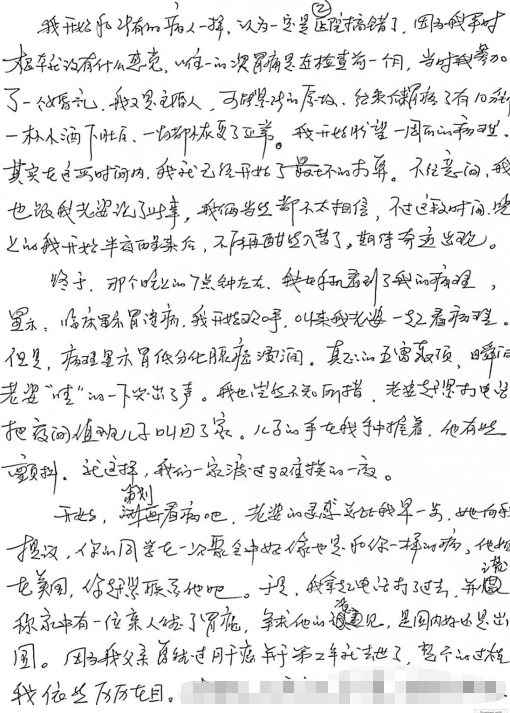 ②
我开始和所有的病人一样，认为一定是医院搞错了，因为我平时
根本就没有什么感觉，唯一的一次胃痛是在检查前一个月，当时我参加
了一个婚礼，我又是主婚人，可能是的原故，结果有了有10分钟
一杯水酒下肚后，一切都恢复了正常。我开始盼望一周后的病理。
其实在这段时间内，我就已经开始了最坏的打算。不经意间，我
也跟我老婆说了此事，我俩当然都不太相信，不过这段时间，晚
上的我开始半夜醒来后，不能再酣然入梦了，期待奇迹出现。
终于，那个晚上的7点钟左右，我在手机看到了我的病理，
显示：临床显示胃溃疡，我开始欢呼，叫来我老婆一起看病理。
但是，病理显示胃低分化腺癌 溃润。真正的五雷轰顶，瞬间
老婆“哇”的一下哭出了声。我也茫然不知所措，老婆赶紧打电话
把夜间值班儿子叫回了家。儿子的手在我手中握着，他有些
颤抖。就这样，我们一家渡过了难挨的一夜。
策划
开始，看病吧，老婆的灵感总比我早一步，她向我
提议，你的同学在一次聚会中好像也是和你一样的病，他如
在美国，你赶紧联系他吧。于是，我拿起电话打了过去，并谎
称家中有一位亲人续了胃癌，争求他的意见，是国内好还是出
国。因为我父亲曾经过肝癌并于第二年就去世了，整个的过程
我依然历历在目。